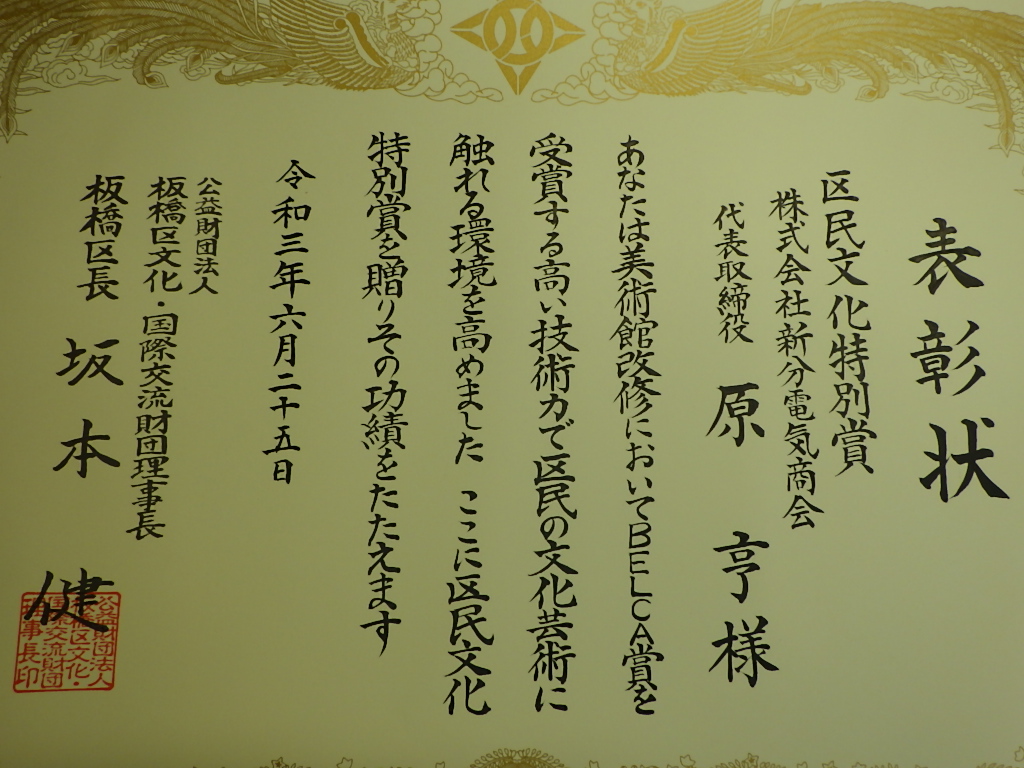 表彰状
区民文化特別賞
株式会社新分電気商会
代表取締役 原 亨様
あなたは美術館改修においてBELCA賞を
受賞する高い技術力で区民の文化芸術に
触れる環境を高めました ここに区民文化
特別賞を贈りその功績をたたえます
令和三年六月二十五日
公益財団法人
板橋区文化・国際交流財団理事長
板橋区長 坂本 健
公益財団法人
板橋区文化・
国際交流財団
理事長印